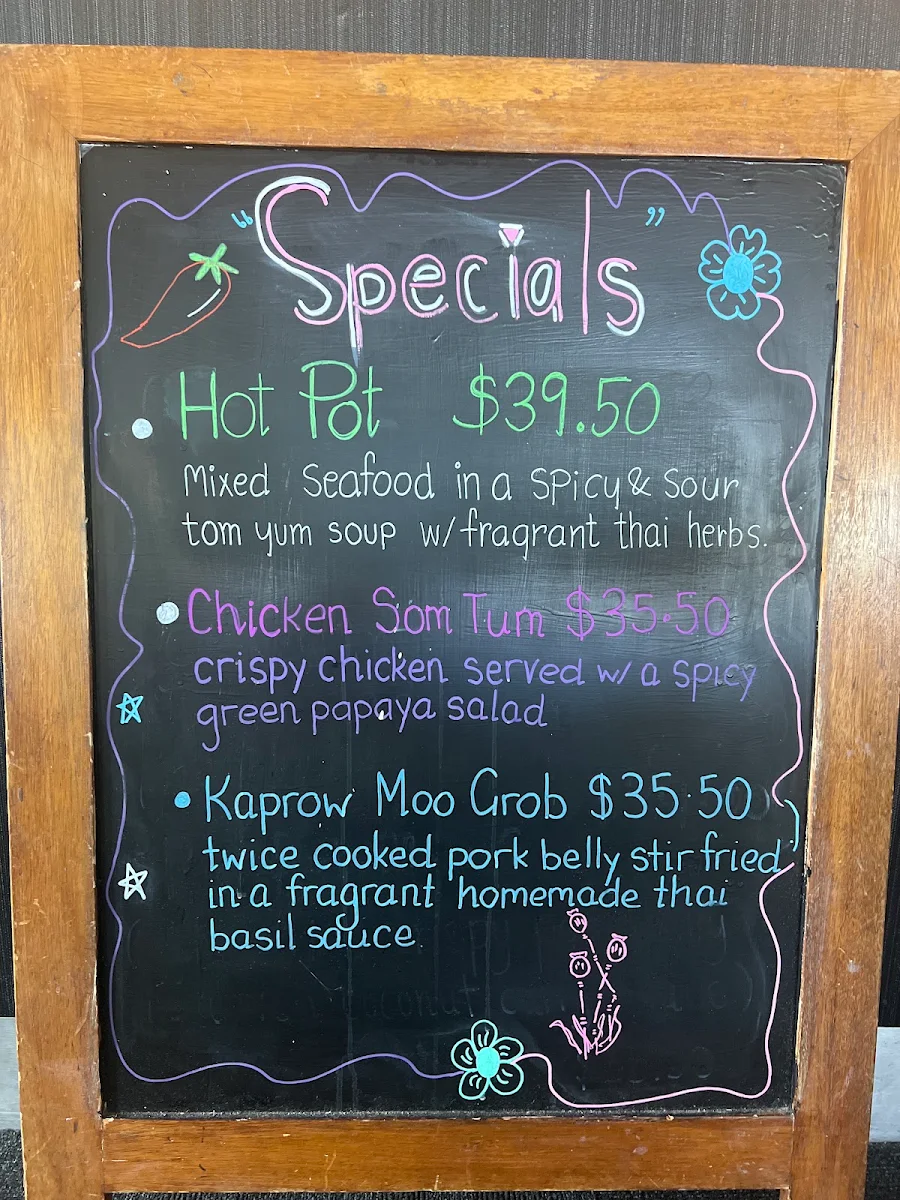 "Specials"
Hot Pot $39.50
Mixed Seafood in a spicy & sour
tom yum soup w/fragrant thai herbs.
Chicken Som Tum $35.50
crispy chicken served w/ a spicy
green papaya salad
Kaprow Moo Grob $35.50
twice cooked pork belly stir fried
in a fragrant homemade thai
basil sauce.